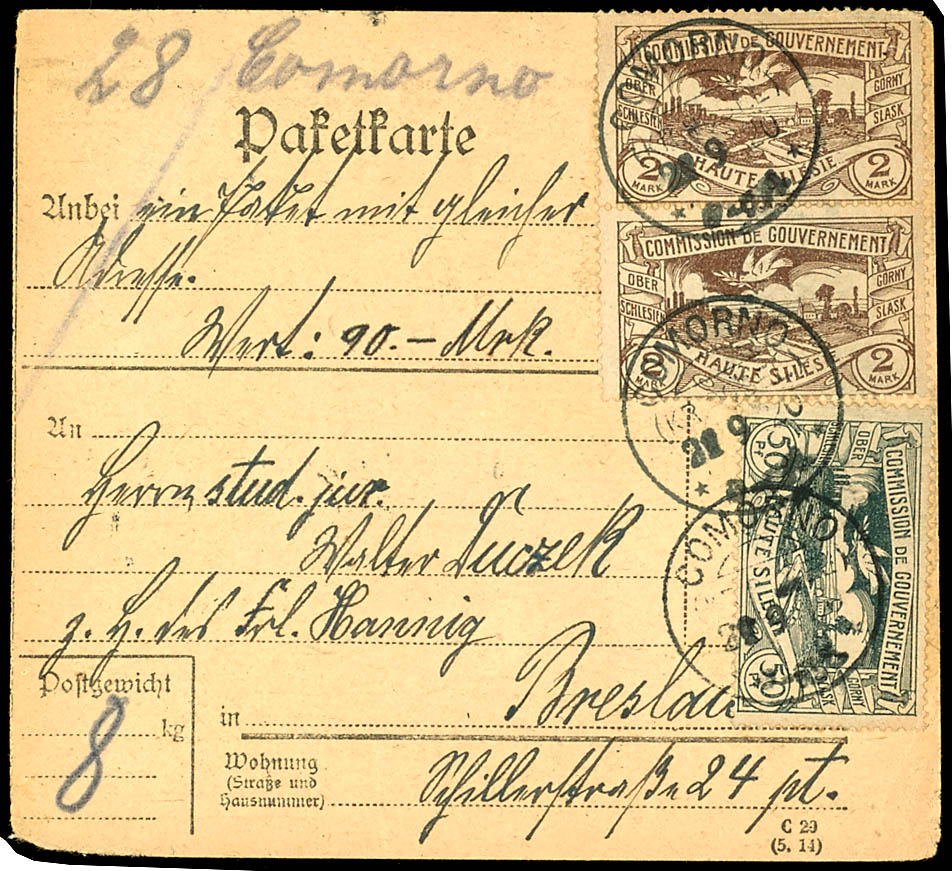 28 Comorno
Paketkarte
Anbei ein Paket mit gleicher
Adresse.
Wert: 90.– Mrk.
An
Herrn stud. jur.
Walter
z. H. des Frl. Hannig
in Breslau
Wohnung
(Straße und
Hausnummer)
Schillerstraße 24 pt.
Postgewicht
kg
8
C 29
(5. 14)
COMMISSION DE GOUVERNEMENT
OBER SCHLESIEN
GORNY SLASK
HAUTE SILESIE
2 MARK
2 MARK
COMMISSION DE GOUVERNEMENT
OBER SCHLESIEN
GORNY SLASK
HAUTE SILES
2 MARK
2 MARK
COMMISSION DE GOUVERNEMENT
OBER
GORNY SLASK
HAUTE SILES
50 Pf
50 Pf
COMORNO
COMORNO
COMORNO